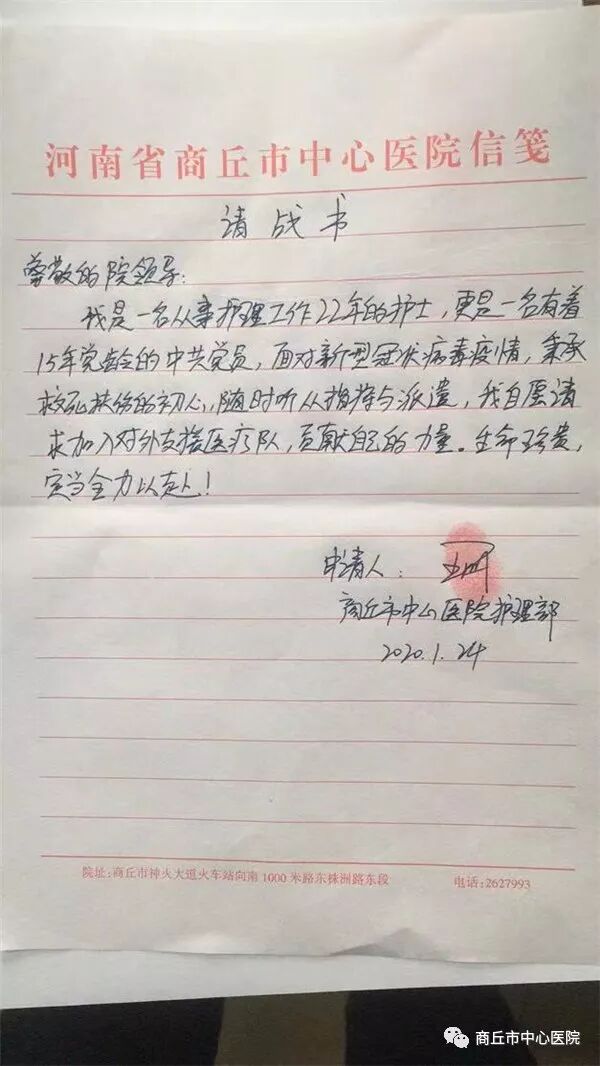 河南省商丘市中心医院信笺
请战书
尊敬的院领导:
我是一名从事护理工作22年的护士,更是一名有着
15年党龄的中共党员,面对新型冠状病毒疫情,秉承
救死扶伤的初心,随时听从指挥与派遣,我自愿请
求加入对外支援医疗队,贡献自己的力量。生命珍贵,
定当全力以赴!
申请人:
商丘市中心医院护理部
2020.1.24
院址:商丘市神火大道火车站向南1000米路东株洲路东段
电话:2627993
商丘市中心医院